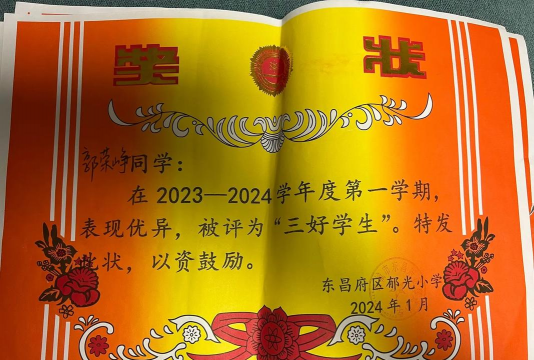 奖 状
郭荣峥同学：
在 2023—2024 学年度第一学期，
表现优异，被评为“三好学生”。特发
此状，以资鼓励。
东昌府区郁光小学
2024 年 1 月